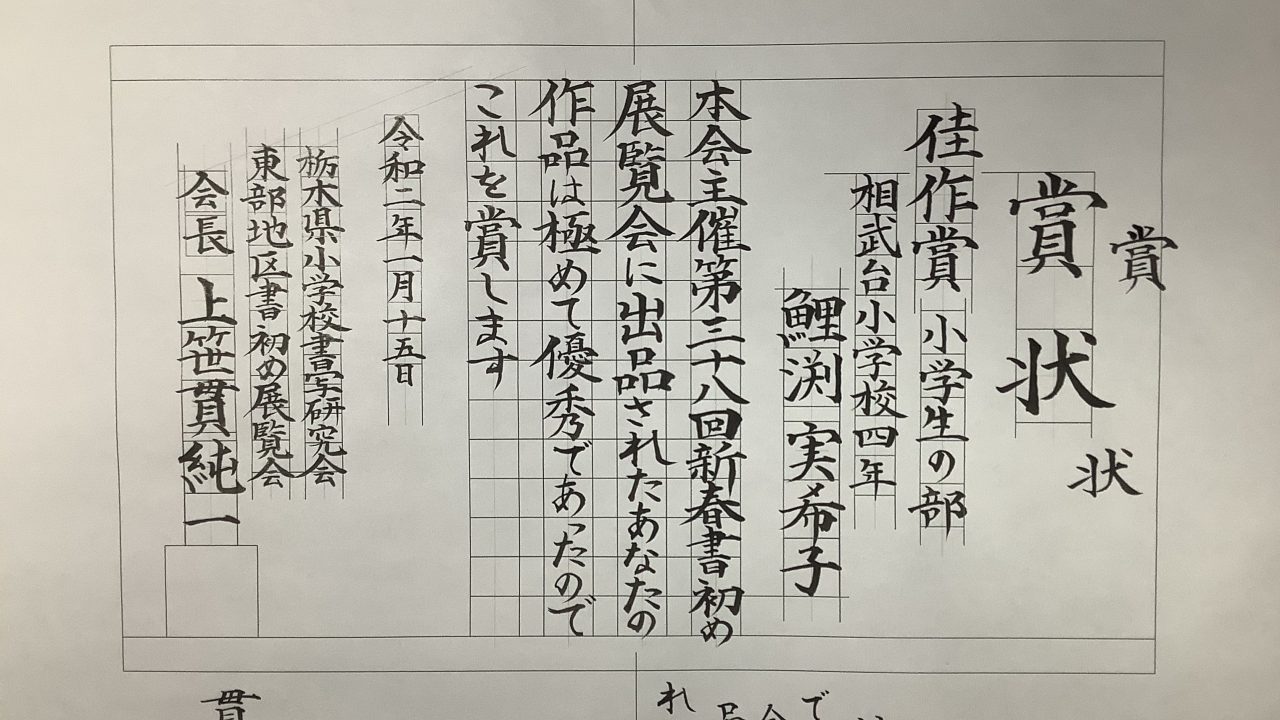 賞
状
賞状
佳作賞 小学生の部
相武台小学校四年
鯉渕実希子
本会主催第三十八回新春書初め
展覧会に出品されたあなたの
作品は極めて優秀であったので
これを賞します
令和二年一月十五日
栃木県小学校書写研究会
東部地区書初め展覧会
会長 上笹貫純一
で
れ
貫